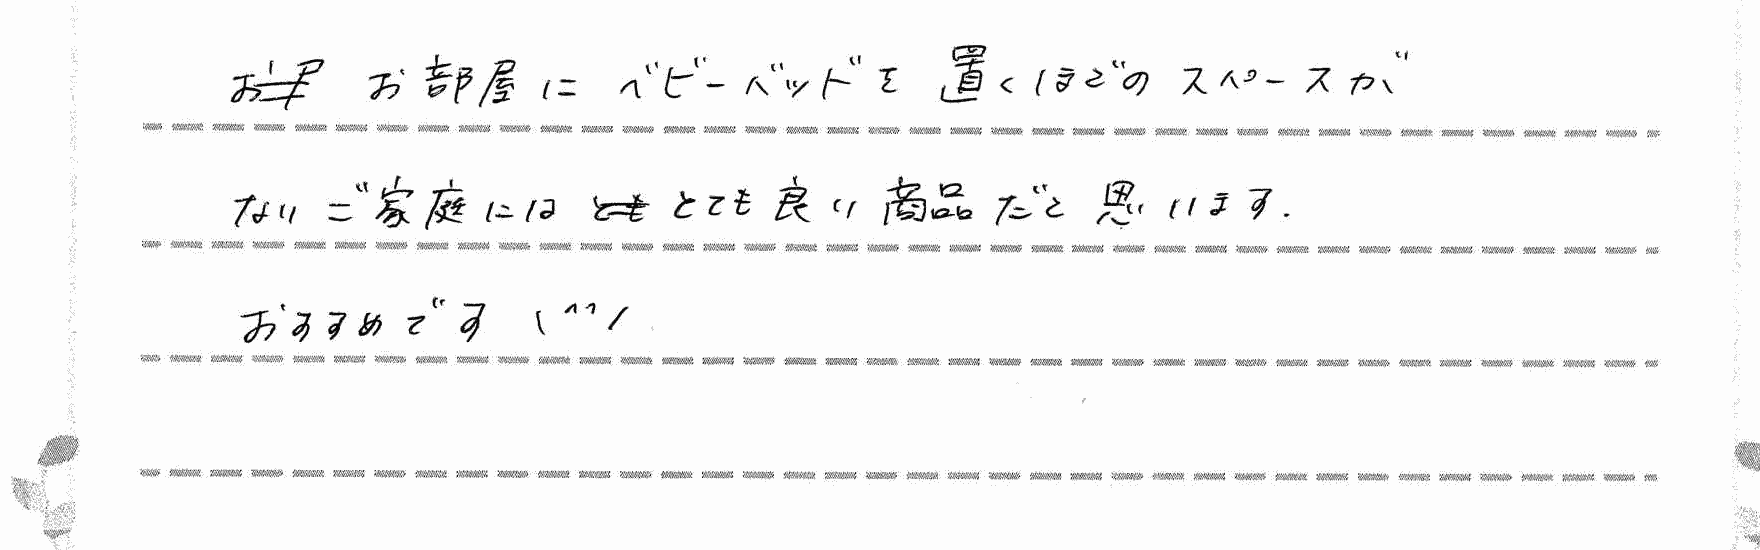 お部屋にベビーベッドを置くほどのスペースが
ないご家庭にはとてもとても良い商品だと思います.
おすすめです (^^)